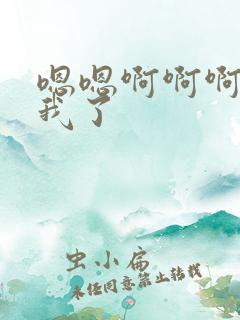 嗯嗯啊啊啊
我了
虫小扁
未经同意禁止转载